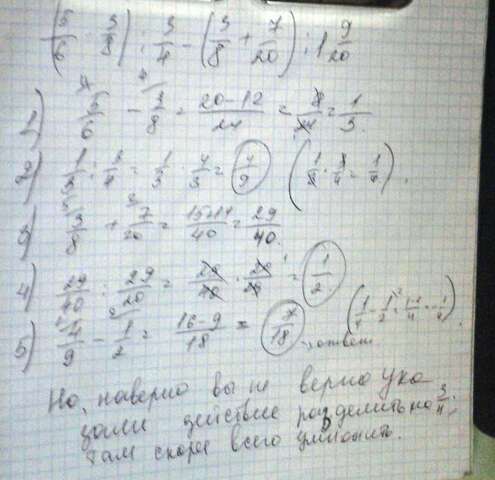 (5/6 - 3/8) : 3/4 - (3/8 + 7/20) : 1 9/20
1) 5/6 - 3/8 = 20-12/24 = 8/24 = 1/3.
2) 1/3 : 3/4 = 1/3 · 4/3 = 4/9 (1/3 · 3/4 = 1/4).
3) 3/8 + 7/20 = 15+14/40 = 29/40.
4) 29/40 : 29/20 = 29/40 · 20/29 = 1/2.
5) 4/9 - 1/2 = 16-9/18 = 7/18 - ответ. (1/4 - 1/2 = 1-2/4 = -1/4).
Но, наверно вы не верно ука
зали действие разделить на 3/4,
там скорее всего умножить.